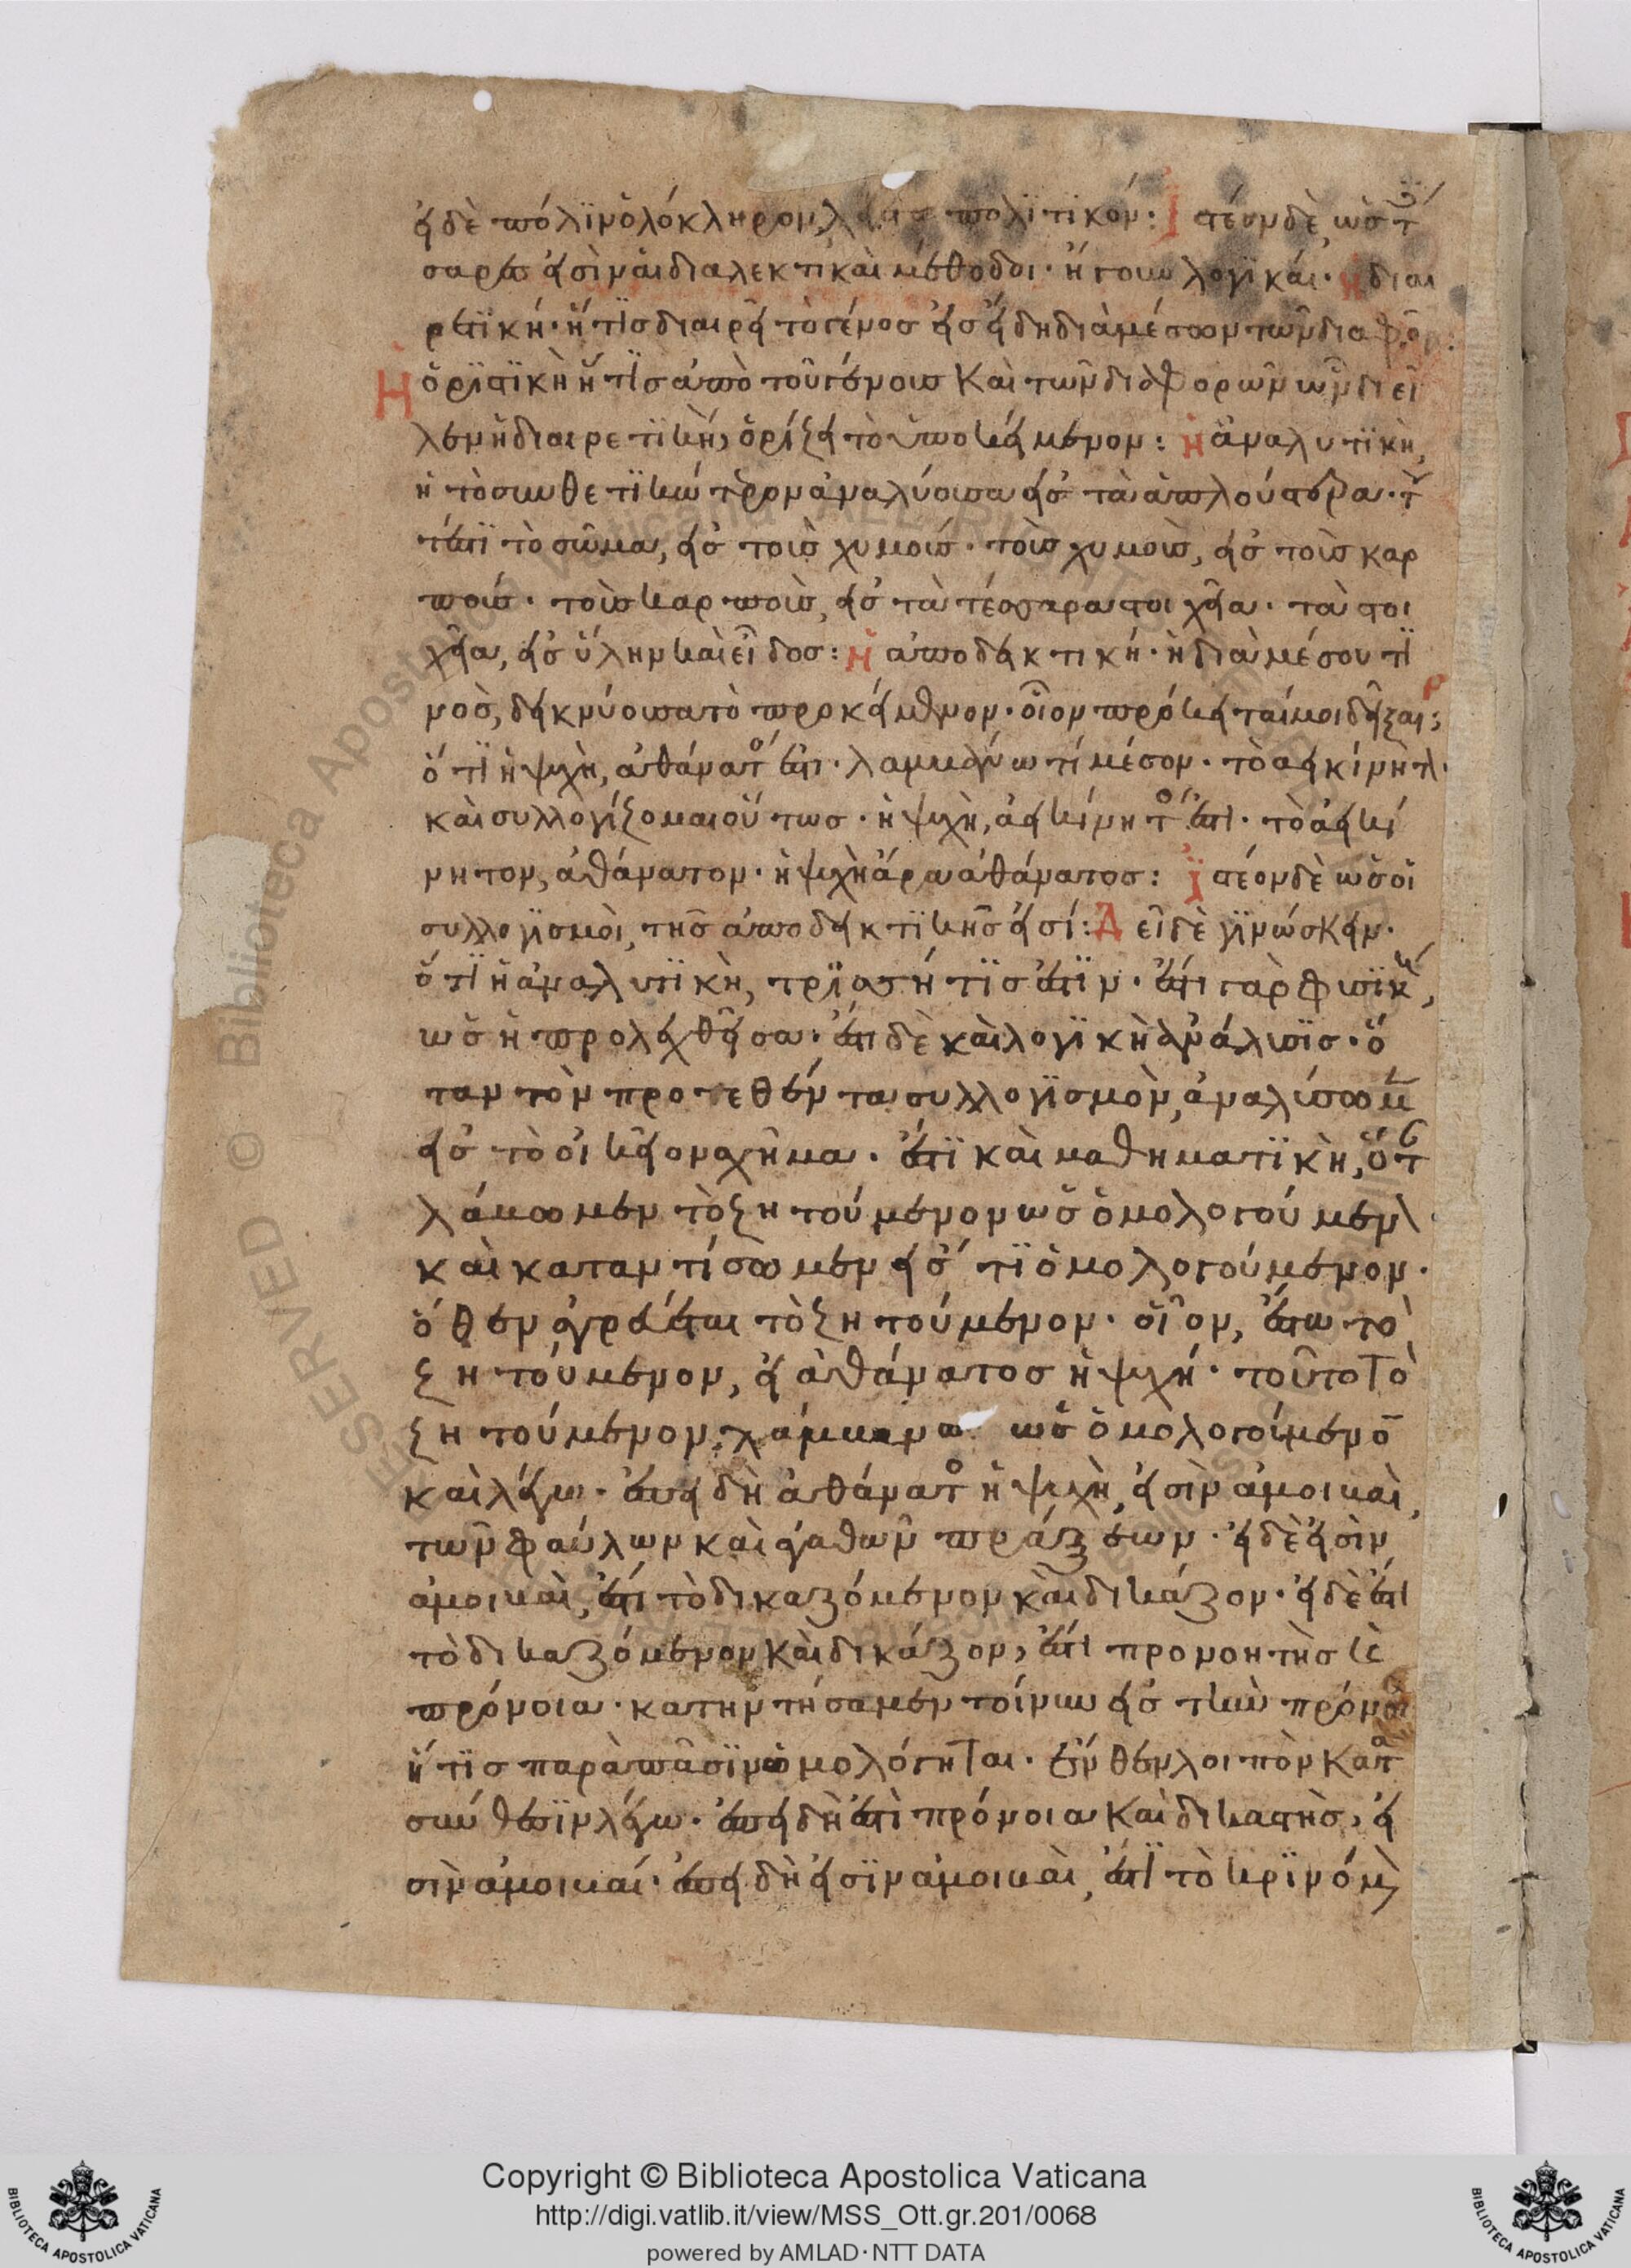 εἰ δὲ πόλιν ὁλόκληρον, λέγεται πολιτικόν: Ἰστέον δὲ, ὡς τέσ
σαρες εἰσὶν αἱ διαλεκτικαὶ μέθοδοι· ἤγουν λογικαί· ἡ διαι
ρετικὴ· ἥτις διαιρεῖ τὸ γένος εἰς εἴδη διὰ μέσων τῶν διαφορῶν:
Ἡ ὁριστικὴ ἥτις ἀπὸ τοῦ γένους καὶ τῶν διαφορῶν ὧν διεῖ
λεν ἡ διαιρετικὴ, ὁρίζει τὸ ὑποκείμενον: ἡ ἀναλυτικὴ,
ἡ τὸ συνθετικώτερον ἀναλύουσα εἰς τὰ ἁπλούστερα·
τέστι τὸ σῶμα, εἰς τοὺς χυμούς· τοὺς χυμοὺς, εἰς τοὺς καρ
πούς· τοὺς καρποὺς, εἰς τὰ τέσσαρα στοιχεῖα· τὰ στοι
χεῖα, εἰς ὕλην καὶ εἶδος: ἡ ἀποδεικτική· ἡ διὰ μέσου τι
νὸς, δεικνύουσα τὸ προκείμενον· οἷον πρόκειταί μοι δεῖξαι;
ὅτι ἡ ψυχὴ, ἀθάνατός ἐστι· λαμβάνω τί μέσον· τὸ ἀεικίνητον·
καὶ συλλογίζομαι οὕτως· ἡ ψυχὴ, ἀεικίνητός ἐστι· τὸ ἀεικί
νητον, ἀθάνατον· ἡ ψυχὴ ἄρα ἀθάνατος: ἰστέον δὲ ὡς οἱ
συλλογισμοὶ, τῆς ἀποδεικτικῆς εἰσί: Δεῖ δὲ γινώσκειν·
ὅτι ἡ ἀναλυτικὴ, τριττή τίς ἐστιν· ἔστι γὰρ φυσικὴ,
ὡς ἡ προλεχθεῖσα· ἔστι δὲ καὶ λογικὴ ἀνάλυσις· ὅ
ταν τὸν προτεθέντα συλλογισμὸν, ἀναλύσωμεν
εἰς τὸ οἰκεῖον σχῆμα· ἔστι καὶ μαθηματικὴ, ὅτε
λάβωμεν τὸ ζητούμενον ὡς ὁμολογούμενον·
καὶ καταντίσωμεν εἴς τι ὁμολογούμενον·
ὅθεν ἀγρεύεται τὸ ζητούμενον· οἷον, ἔστω τὸ
ζητούμενον, εἰ ἀθάνατος ἡ ψυχή· τοῦτο τὸ
ζητούμενον, λαμβάνω ὡς ὁμολογούμενον
καὶ λέγω· ἐπειδὴ ἀθάνατος ἡ ψυχὴ, εἰσὶν ἀμοιβαὶ,
τῶν φαύλων καὶ ἀγαθῶν πράξεων· εἰ δὲ εἰσὶν
ἀμοιβαὶ, ἔστι τὸ δικαζόμενον καὶ δικάζον· εἰ δὲ ἔστι
τὸ δικαζόμενον καὶ δικάζον, ἔστι προνοητὴς καὶ
πρόνοια· κατηντήσαμεν τοίνυν εἰς τὴν πρόνοιαν
ἥτις παρὰ πᾶσιν ὡμολόγηται· ἔνθεν λοιπὸν κατὰ
σύνθεσιν λέγω· ἐπειδὴ ἔστι πρόνοια καὶ δικαστὴς, εἰ
σὶν ἀμοιβαί· ἐπειδὴ εἰσὶν ἀμοιβαὶ, ἔστι τὸ κρινόμενον
Copyright © Biblioteca Apostolica Vaticana
http://digi.vatlib.it/view/MSS_Ott.gr.201/0068
powered by AMLAD·NTT DATA